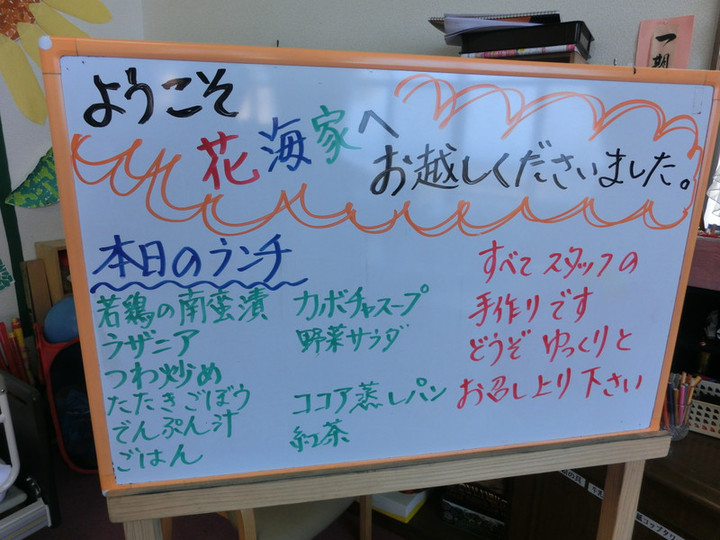 ようこそ
花海家へ
お越しくださいました。
本日のランチ
若鶏の南蛮漬
ラザニア
つわ炒め
たたきごぼう
でんぷん汁
ごはん
カボチャスープ
野菜サラダ
ココア蒸しパン
紅茶
すべてスタッフの
手作りです
どうぞ ゆっくりと
お召し上り下さい
一期